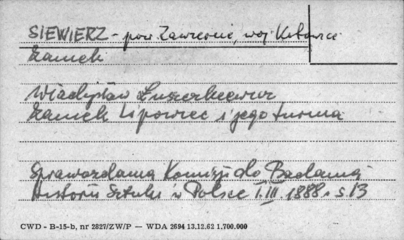 SIEWIERZ - pow. Zawiercie, woj. Katowice
Zamek
Władysław Łuszczkiewicz
Zamek Lipowiec i jego turma
Sprawozdania Komisji do Badania
Historii Sztuki w Polsce T.III. 1888 r. s.13
CWD - B-15-b, nr 2827/ZW/P — WDA 2694 13.12.62 1.700.000